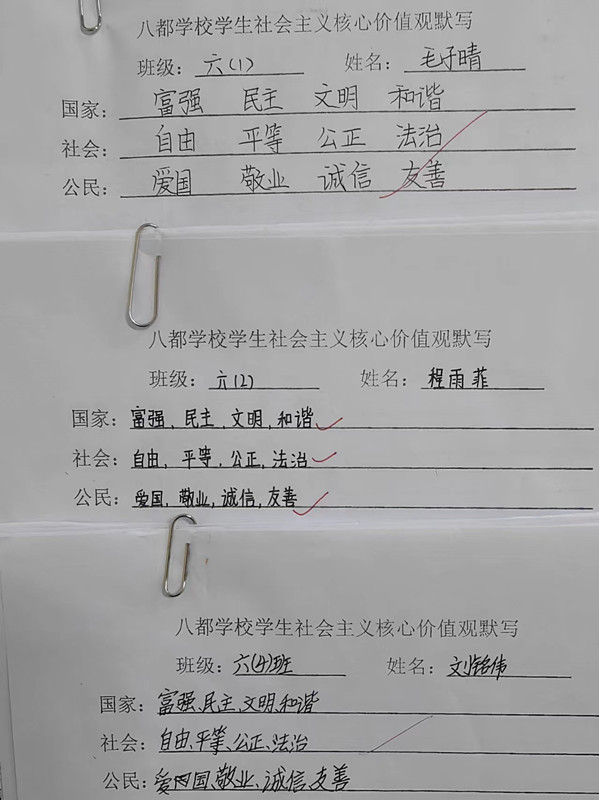 八都学校学生社会主义核心价值观默写
班级：六(1) 姓名：毛子晴
国家：富强 民主 文明 和谐
社会：自由 平等 公正 法治
公民：爱国 敬业 诚信 友善
八都学校学生社会主义核心价值观默写
班级：六(2) 姓名：程雨菲
国家：富强，民主，文明，和谐
社会：自由，平等，公正，法治
公民：爱国，敬业，诚信，友善
八都学校学生社会主义核心价值观默写
班级：六(4)班 姓名：刘铭伟
国家：富强、民主、文明、和谐
社会：自由、平等、公正、法治
公民：爱国、敬业、诚信、友善